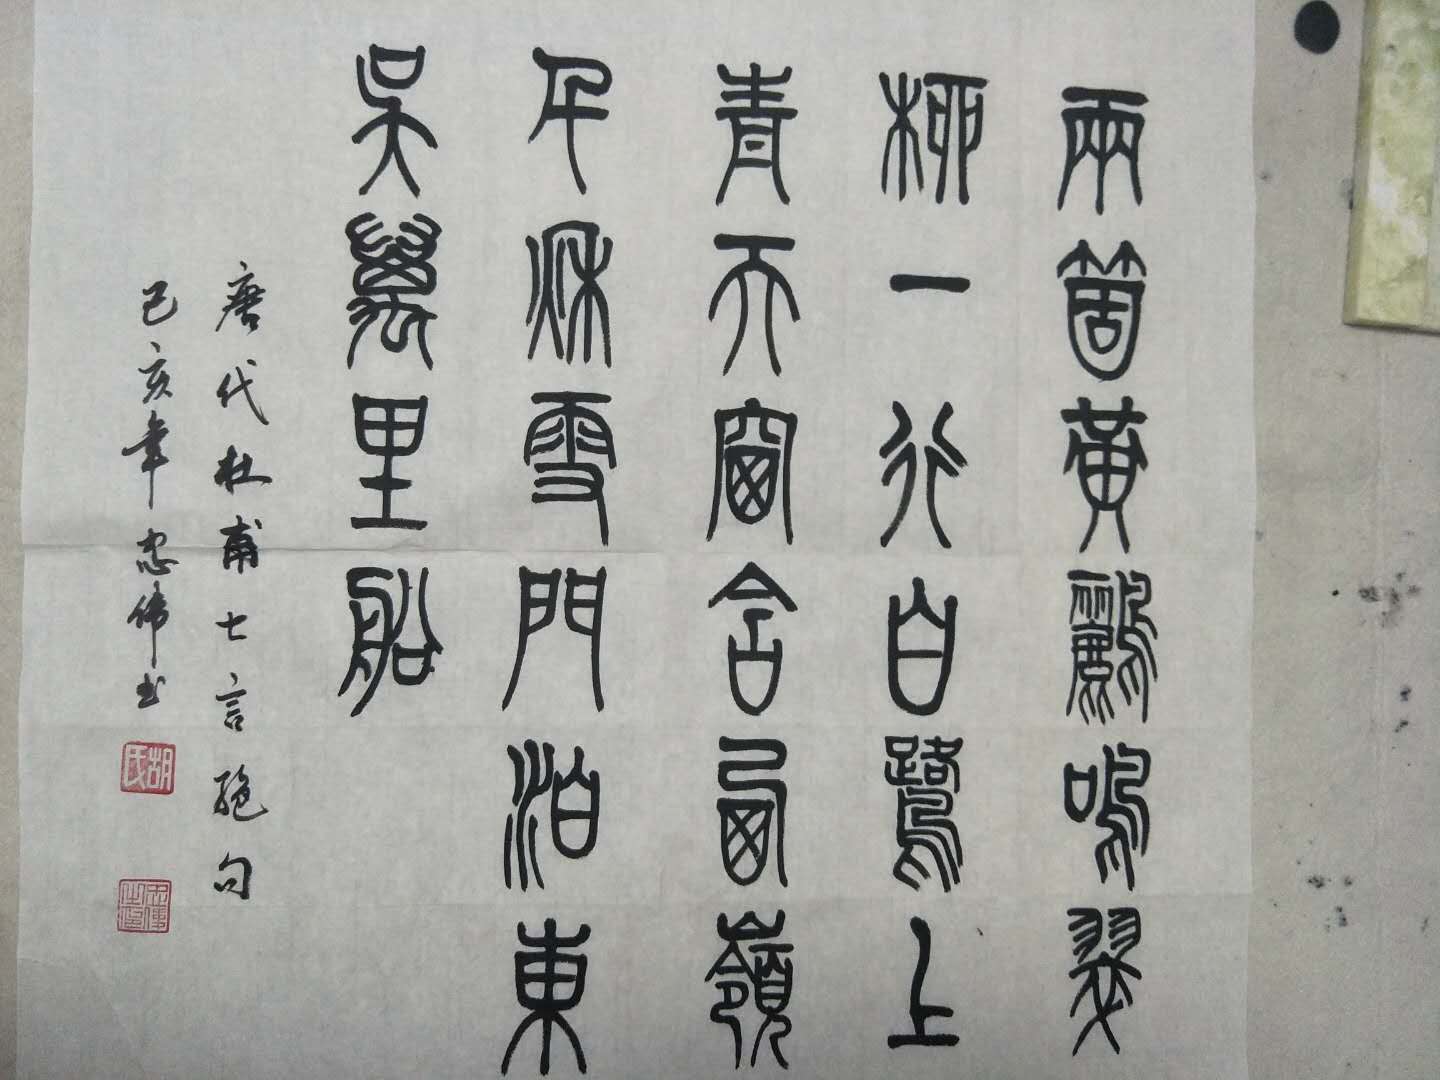 兩箇黃鸝鳴翠
柳一行白鷺上
青天窗含西嶺
千秌雪門泊東
吳萬里船
唐代杜甫七言絕句
己亥年忠偉書
胡氏